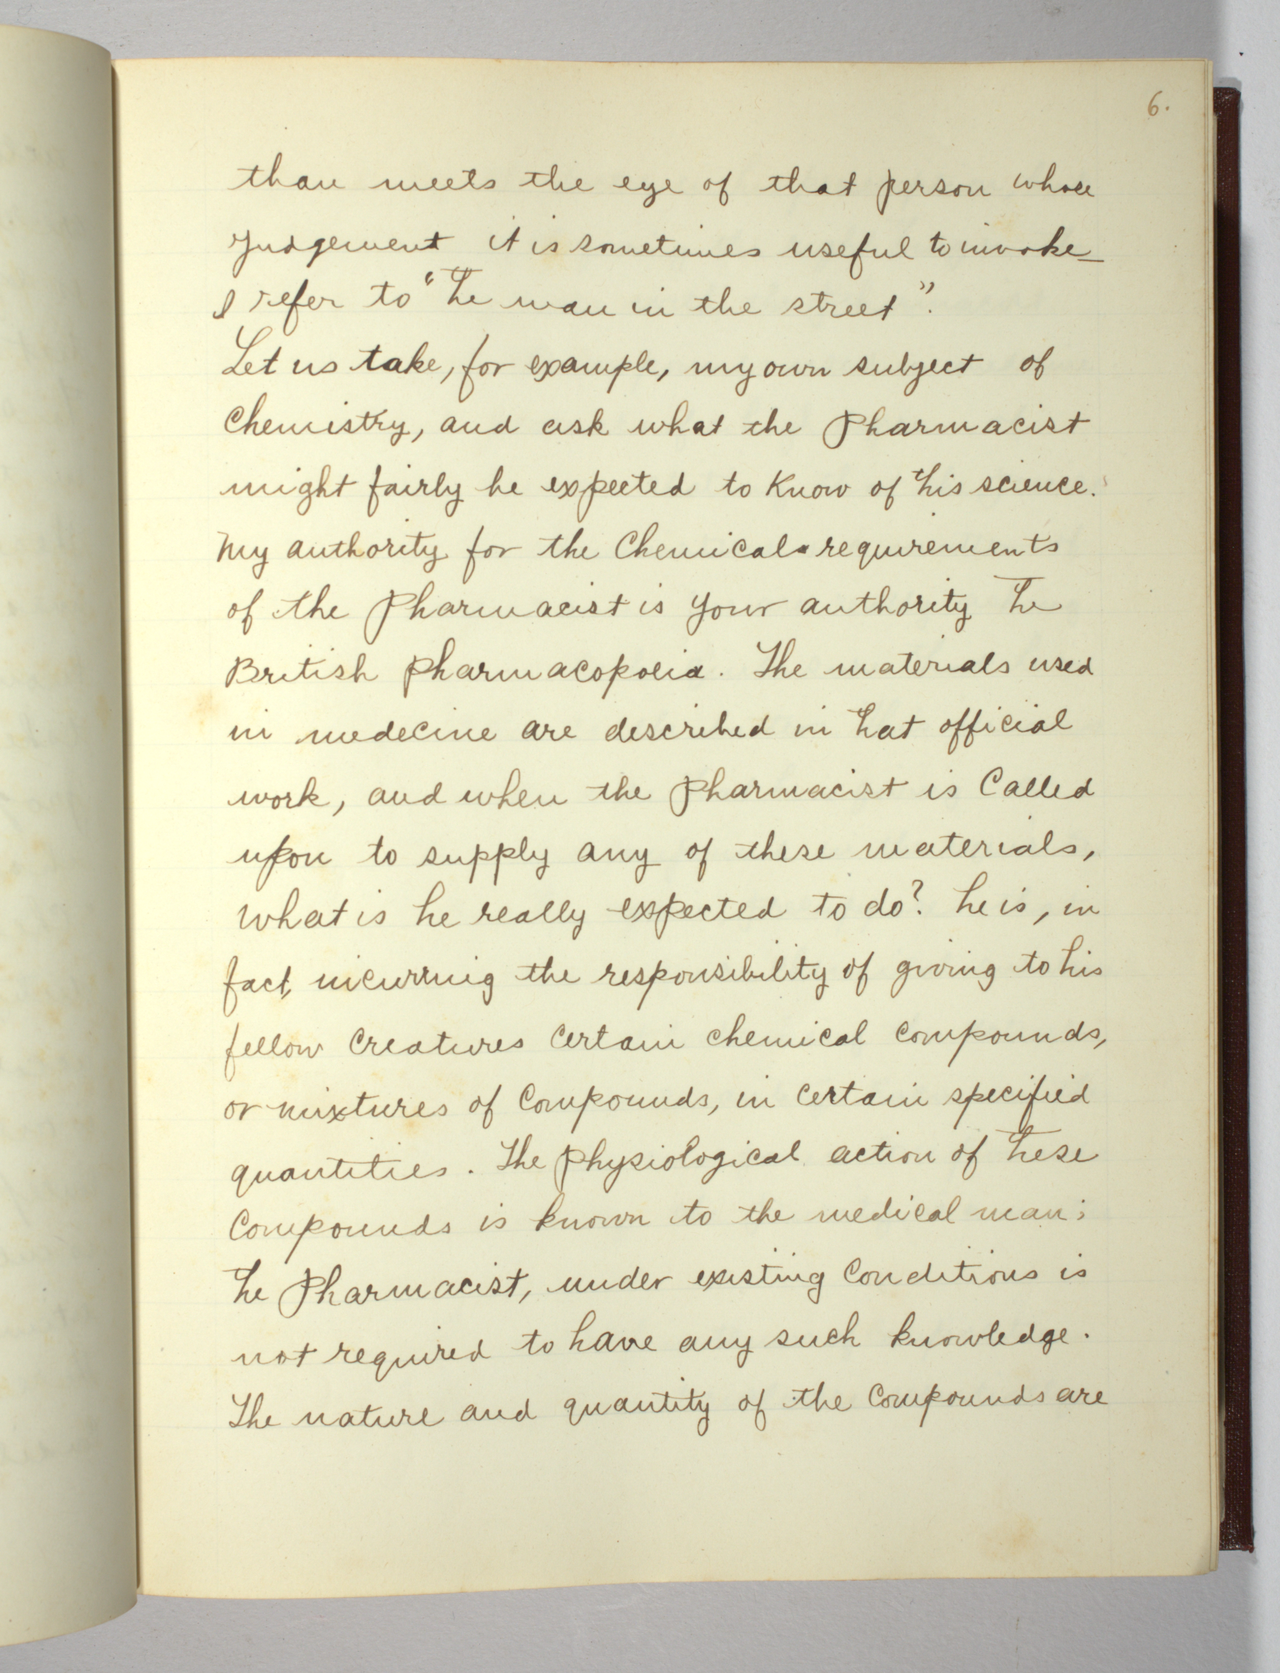 6.
than meets the eye of that person whose
judgement it is sometimes useful to invoke—
I refer to "the man in the street".
Let us take, for example, my own subject of
Chemistry, and ask what the Pharmacist
might fairly be expected to know of this science.
My authority for the Chemical requirements
of the Pharmacist is your authority the
British Pharmacopoeia. The materials used
in medecine are described in that official
work, and when the Pharmacist is Called
upon to supply any of these materials,
what is he really expected to do? he is, in
fact, incurring the responsibility of giving to his
fellow Creatures Certain chemical Compounds,
or mixtures of Compounds, in Certain specified
quantities. The physiological action of these
Compounds is known to the medical man;
the Pharmacist, under existing Conditions is
not required to have any such knowledge.
The nature and quantity of the Compounds are